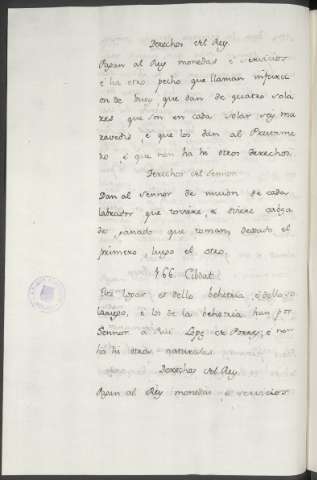 Derechos del Rey
Pagan al Rey monedas è servicios
è ha otro pecho que llaman infurcion
de buey, que dan de quatro sola
res que son en cada solar sey ma
ravedis, è que los dan al Prestame
ro, è que non ha hi otros Derechos.
Derechos del Sennor
Dan al sennor de nucion de cada
labrador que toviere, è oviere
de ganado que toman, despues el
primero, luego el otro.
166 Cibdat
Este logar es dello behetria, è dello so
lariego, è los de la behetria han por
Sennor a Rui Lopez de è non
ha hi otros naturales.
Derechos del Rey
Pagan al Rey monedas è servicios